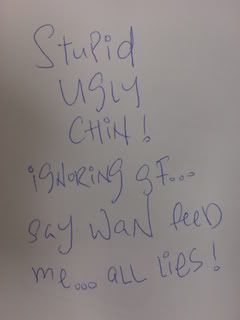 Stupid
UGLY
CHIN!
iGNORiNG GF...
SAY WAN FEED
Me... ALL LieS!